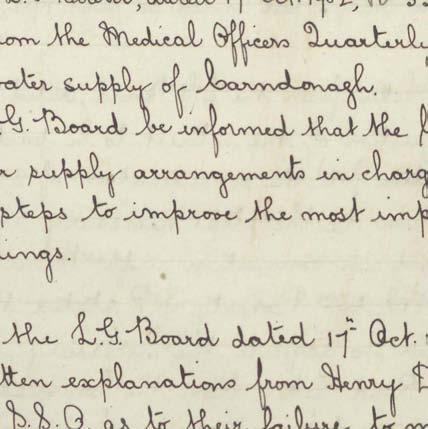 dated 17 Oct 1902, No 33
om the Medical Officers Quarterly
ater supply of Carndonagh.
G. Board be informed that the
r supply arrangements in charg
steps to improve the most imp
ings.
the L.G. Board dated 17th Oct.
tten explanations from Henry
S.S.O. as to their failure to m